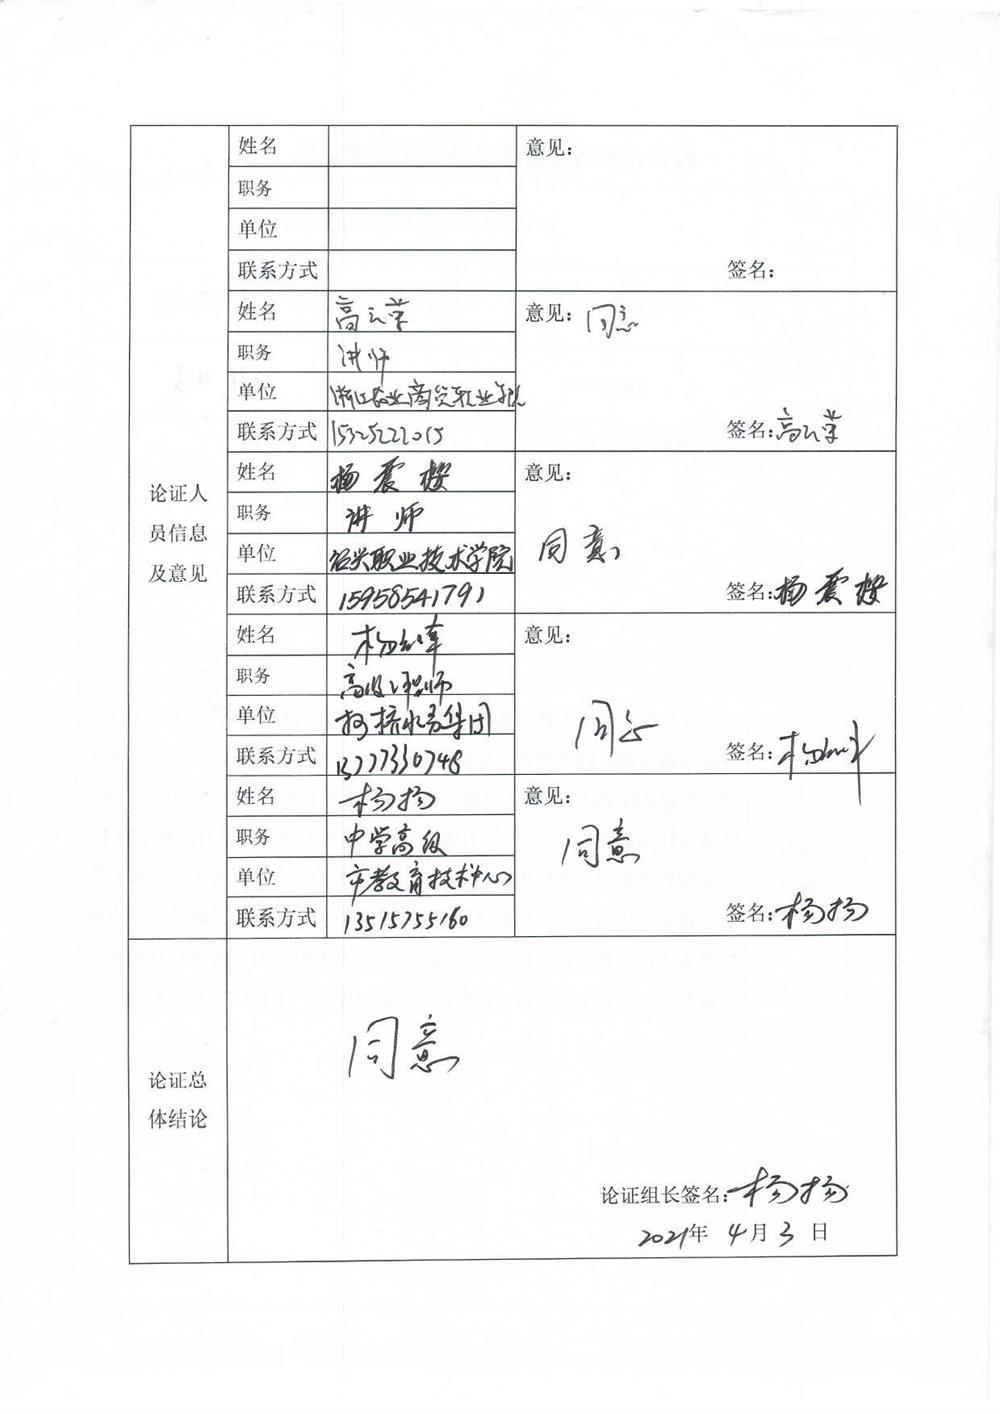 姓名
意见：
职务
单位
联系方式
签名：
姓名 高云荣
意见： 同意
职务 讲师
单位 浙江农业商贸职业学院
联系方式 15325222015
签名：高云荣
论证人
员信息
及意见
姓名 杨震楼
意见：
职务 讲师
单位 绍兴职业技术学院
同意
联系方式 15958541791
签名：杨震楼
姓名
意见：
职务 高级工程师
单位 柯桥水务集团
同意
联系方式 13777330748
签名：
姓名 杨扬
意见：
职务 中学高级
同意
单位 市教育技术中心
联系方式 13515755160
签名：杨扬
论证总
体结论
同意
论证组长签名：杨扬
2021年 4月3日